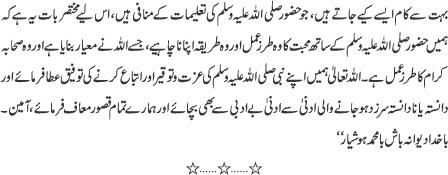 بہت سے کام ایسے کیے جاتے ہیں، جو حضور صلی اللہ علیہ وسلم کی تعلیمات کے منافی ہیں، اس لیے مختصر بات یہ ہے کہ
ہمیں حضور صلی اللہ علیہ وسلم کے ساتھ محبت کا وہ طرز عمل اور وہ طریقہ اپنانا چاہیے، جسے اللہ نے معیار بنایا ہے اور وہ صحابہ
کرام کا طرز عمل ہے۔ اللہ تعالیٰ ہمیں اپنے نبی صلی اللہ علیہ وسلم کی عزت و توقیر اور اتباع کرنے کی توفیق عطا فرمائے اور
دانستہ یا نا دانستہ سرزد ہو جانے والی ادنیٰ سے ادنیٰ بے ادبی سے بھی بچائے اور ہمارے تمام قصور معاف فرمائے، آمین۔
با خدا دیوانہ باش با محمد ہوشیار‘‘
☆……☆……☆